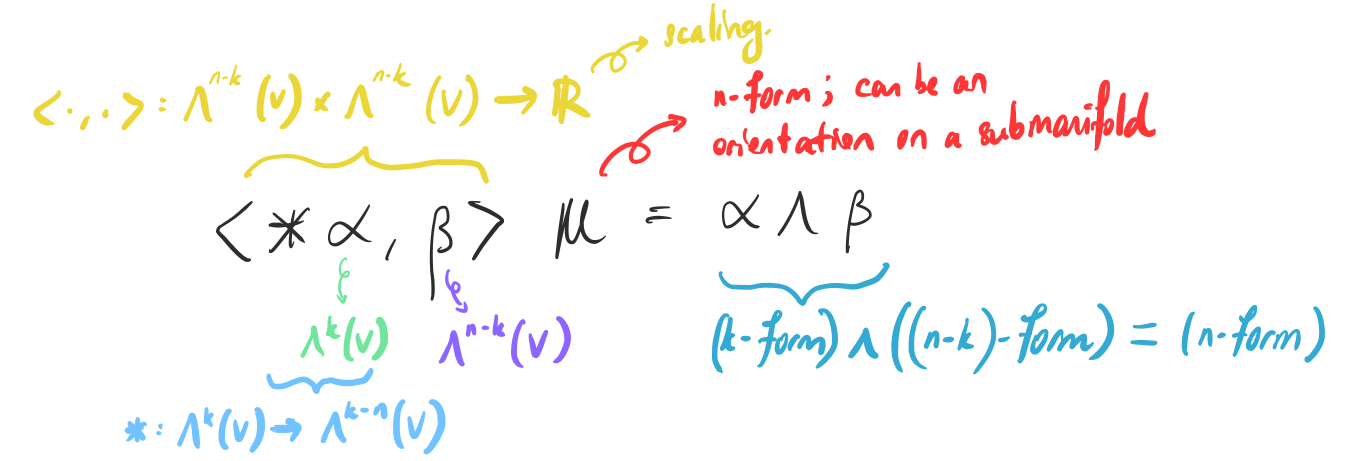 scaling.
<·,·> : Λ^{n-k}(V) × Λ^{n-k}(V) → ℝ
n-form ; can be an
orientation on a submanifold
<* α, β> μ = α ∧ β
Λ^k(V) Λ^{n-k}(V) (k-form) ∧ ((n-k)-form) = (n-form)
* : Λ^k(V) → Λ^{k-n}(V)